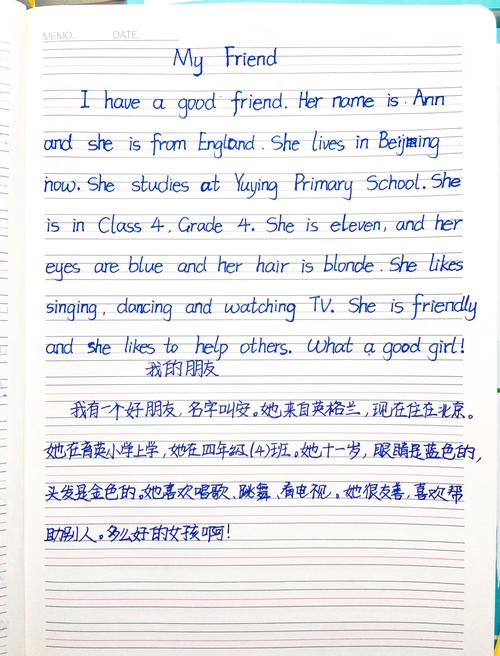 MEMO. DATE.
My Friend
I have a good friend. Her name is Ann
and she is from England. She lives in Beijing
now. She studies at Yuying Primary School. She
is in Class 4, Grade 4. She is eleven, and her
eyes are blue and her hair is blonde. She likes
singing, dancing and watching TV. She is friendly
and she likes to help others. What a good girl!
我的朋友
我有一个好朋友,名字叫安。她来自英格兰,现在住在北京。
她在育英小学上学,她在四年级(4)班。她十一岁,眼睛是蓝色的,
头发是金色的。她喜欢唱歌、跳舞、看电视。她很友善,喜欢帮
助别人。多么好的女孩啊!